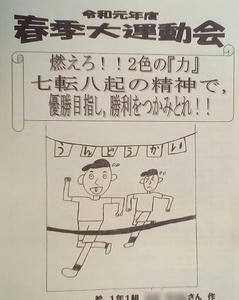 令和元年度
春季大運動会
燃えろ！！2色の『力』
七転八起の精神で，
優勝目指し，勝利をつかみとれ！！
うんどうかい
絵 1年1組 さん 作